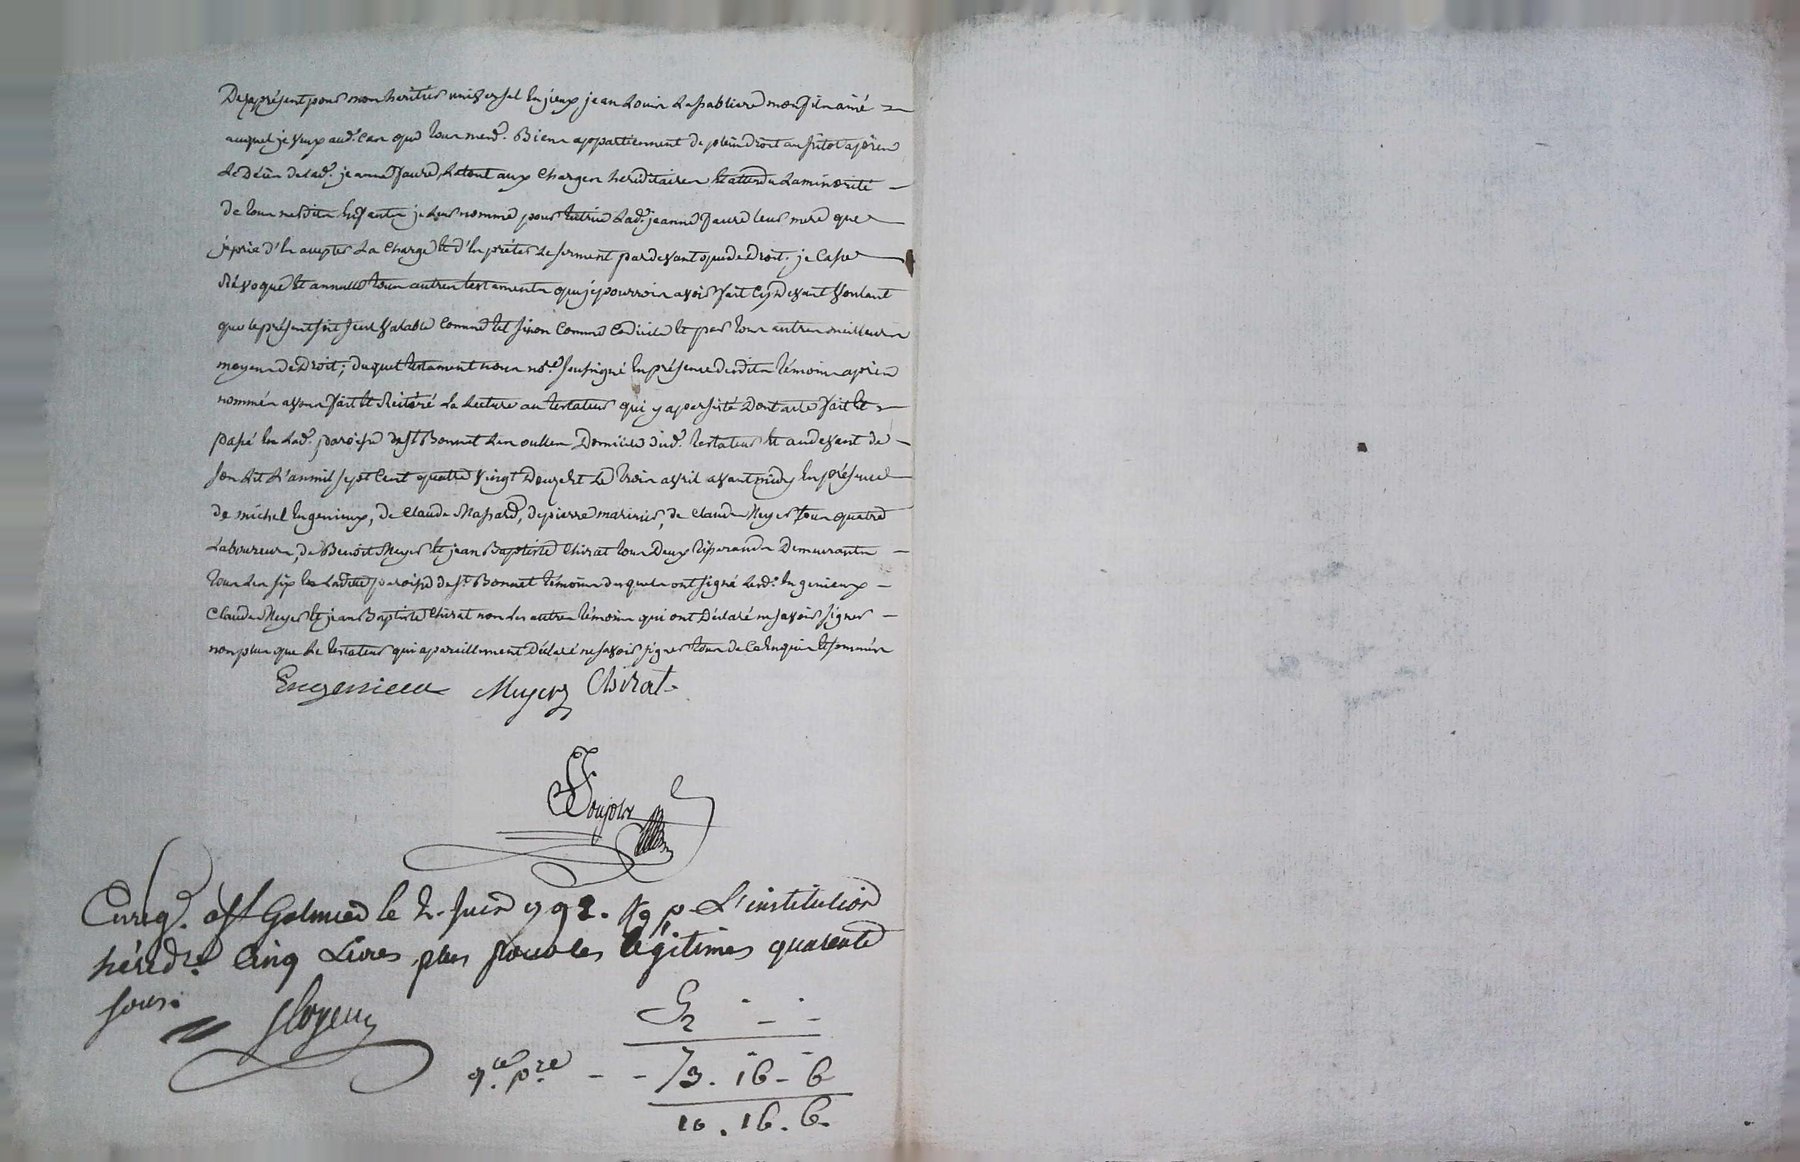 Des apresent pour mon heritier universel Enjeux jean Louis Lasabliere mon fils ainé
auquel je veux aud. Cas que tous mesd. Biens appartiennent de plein droit aussitot après
Le Décès de lad. jeanne faure, Le tout aux Charges hereditaires Et attendu La minorité
de tous mesdits Enfants je leur nomme pour tutrice Lad. jeanne faure leur mere que
je prie d'En accepter La Charge Et d'En prêter Le serment pardevant que de Droit. je Casse
Révoque Et annulle tous autres testaments que je pourrois avoir fait Cy Devant Voulant
que le présent soit seul Valable Comme tel sinon Comme Codicile Et par tous autres meilleurs
moyens de Droit; duquel testament nous no.re soussigné En présence desdits témoins après
nommés avons fait Et Réitéré La Lecture au testateur qui y a persisté Dont acte fait Et
passé En Lad. paroisse de St Bonnet Les oulles, Domicile dud. testateur Et au devant de
son Lit L'an mil sept Cent quatre Vingt Douze Et Le trois avril avant midy En présence
de michel Engenieux, de Claude Massard, de pierre marinier, de Claude Meyer tous quatre
Laboureurs, de Benoit Meyer Et jean Baptiste Chirat tous Deux tisserands Demeurants
tous Les six En Ladite paroisse de St. Bonnet témoins desquels ont signé Lesd. Engenieux
Claude Meyer Et jean Baptiste Chirat non Les autres témoins qui ont Déclaré ne savoir signer
non plus que Le testateur qui a pareillement Déclaré ne savoir signer tous de Ce Enquis Et sommés
Engenieux Meyer Chirat
Enreg. a St Galmier le 2. Juin 1792. p L'institution
héréd.re Cinq Livres plus pour les légitimes quarente
sous.
73. 16 - 6
10. 16. 6.